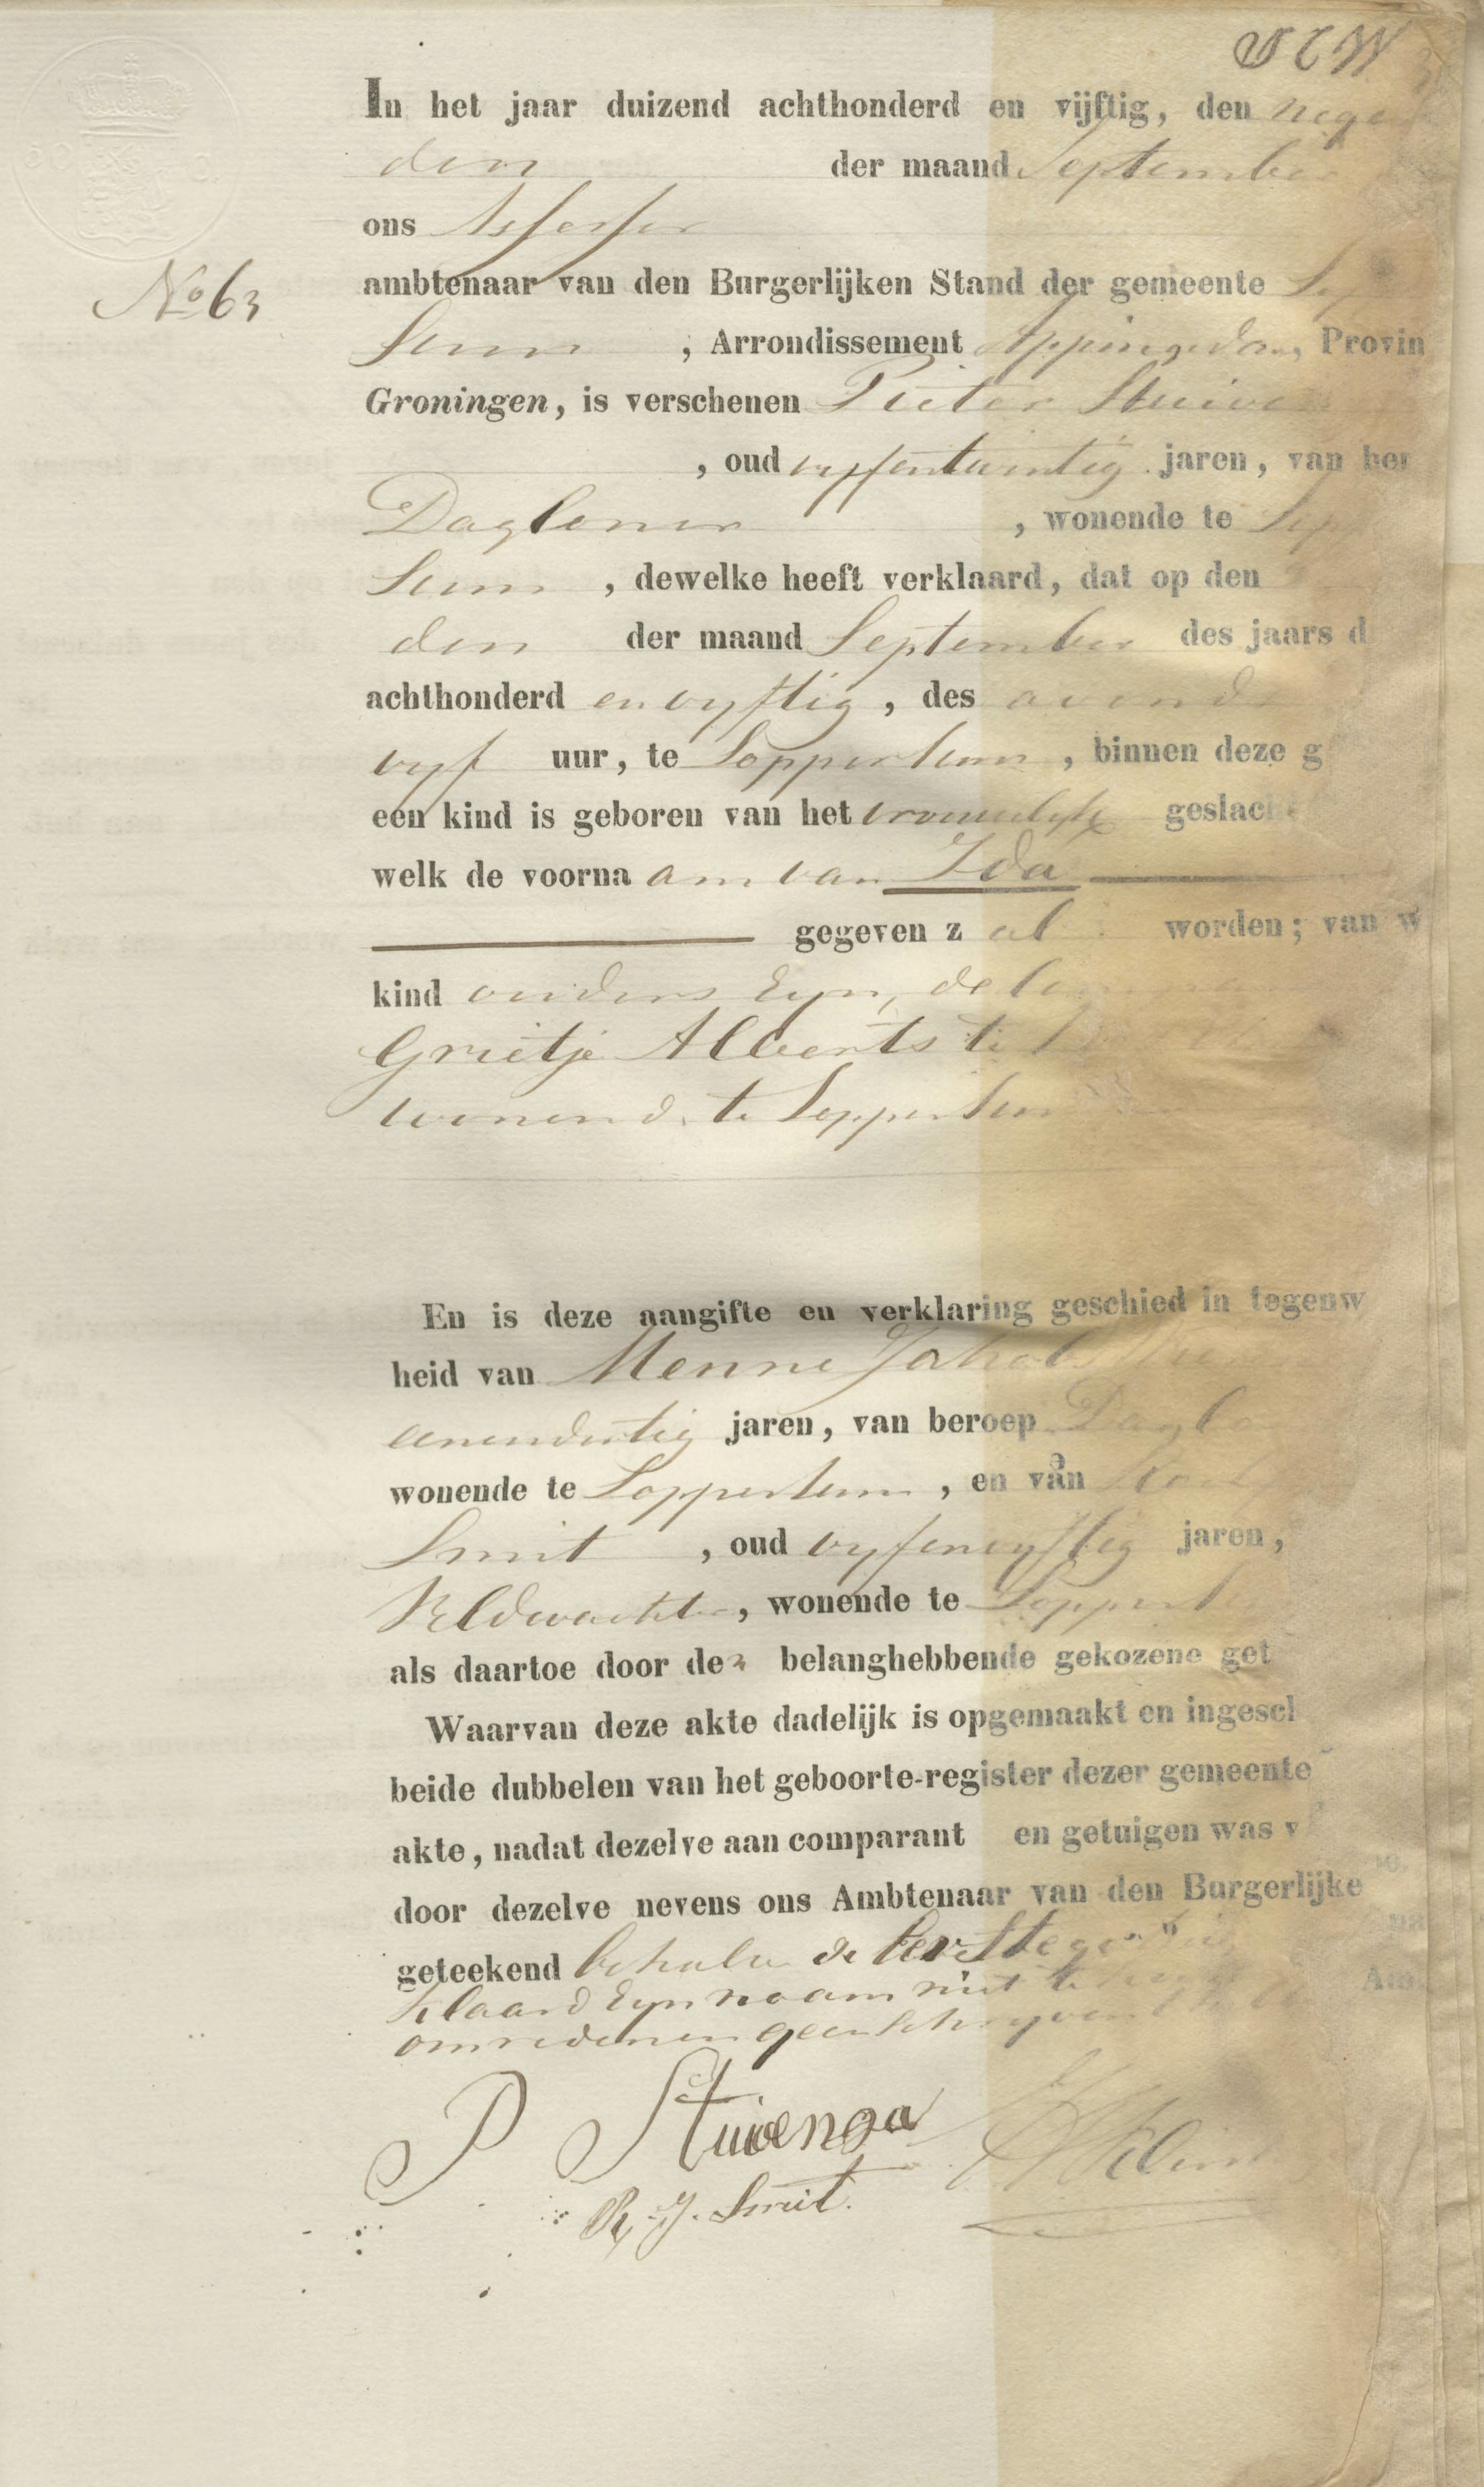 In het jaar duizend achthonderd en vijftig, den
den der maand September
ons Assessor
No 63
ambtenaar van den Burgerlijken Stand der gemeente
sum , Arrondissement Appingedam, Provin
Groningen, is verschenen Pieter Stuive
, oud vyfentwintig jaren, van ber
Dagloner , wonende te Lopp
sum , dewelke heeft verklaard, dat op den
den der maand September des jaars d
achthonderd en vyftig, des avonds
vyf uur, te Loppersum , binnen deze g
een kind is geboren van het vrouwelyk geslach
welk de voorna am van Ida
gegeven z al worden; van w
kind ouders zyn, de
Grietje Alberts
wonend te Loppersum
En is deze aangifte en verklaring geschied in tegenw
heid van Menne Jakobs
eenendertig jaren, van beroep Daglo
wonende te Loppersum , en van
Smit , oud vyfenvyftig jaren,
Veldwachter, wonende te Loppersu
als daartoe door de belanghebbende gekozene get
Waarvan deze akte dadelijk is opgemaakt en ingesch
beide dubbelen van het geboorte-register dezer gemeente
akte, nadat dezelve aan comparant en getuigen was v
door dezelve nevens ons Ambtenaar van den Burgerlijke
geteekend behalve de eerste
klaard zyn naam niet te
om redenen geen schryven
P Stuivenga
R. J. Smit.